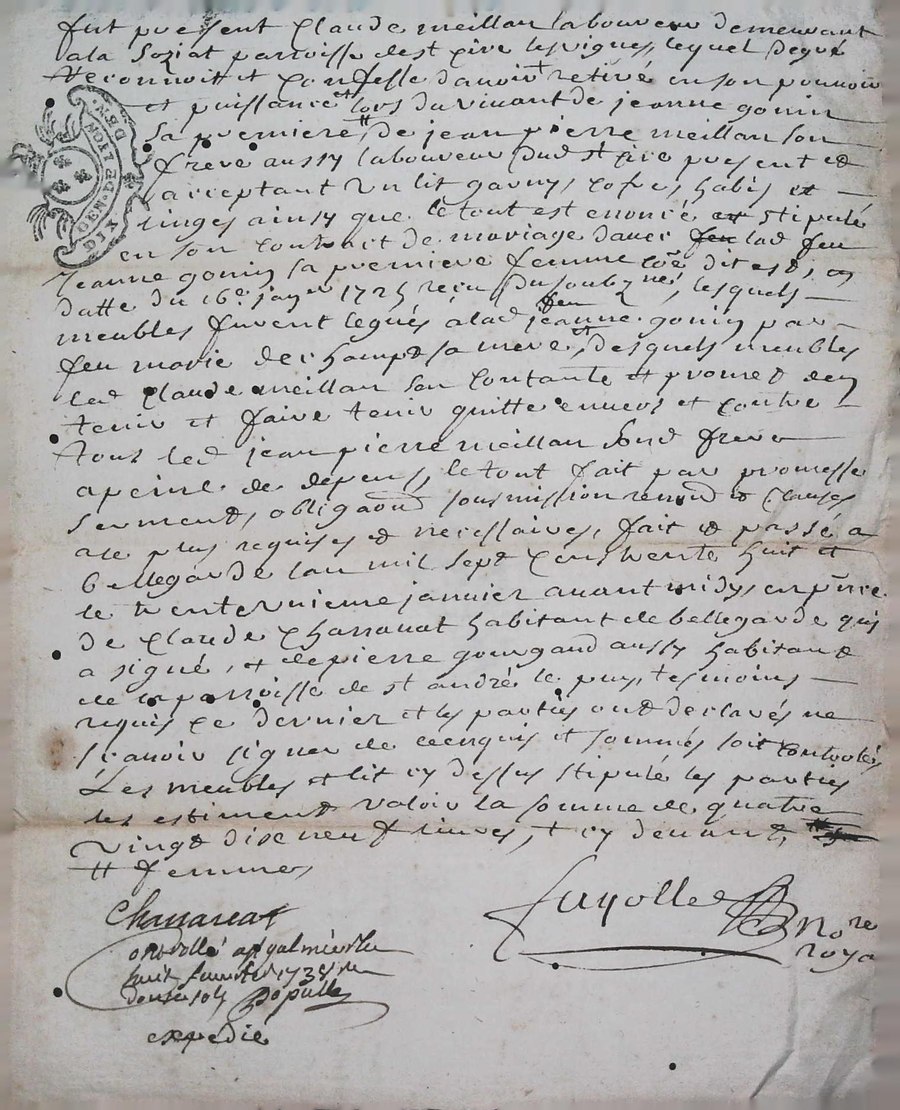 fut present Claude meillan laboureur demeurant
ala Soziat parroisse de st cire les vignes, lequel de gré
reconnoit et confesse d'avoir retiré en son pouvoir
et puissance lors du vivant de jeanne gonin
sa premiere # de jean pierre meillan son
frere aussy laboureur dud st cire present et
acceptant un lit garny, cofre, habis et
linges ainsy que le tout est enoncé et stipulé
en son contract de mariage avec feu lad feu
Jeanne gonin sa premiere femme dit est, en
datte du 16e janer 1725 reçu du soubzné, lesquels
meubles furent legués a lad feu jeanne gonin par
feu marie deschamps sa mere, desquels meubles
led Claude meillan son contante et promet den
tenir et faire tenir quitte envers et contre
tous led jean pierre meillan sond frere
a peine de depens, le tout fait par promesse
serment, obligaon soumission renond et clauses
a le plus requises et necessaires, fait et passé a
bellegarde lan mil sept cens trente huit et
le trente unieme janvier avant midy, en pnce
de Claude Charrauat habitant de bellegarde qui
a signé, et de pierre gourgaud aussy habitant
de la parroisse de st andré le puy, tesmoins
requis ce dernier et les parties ont declarés ne
scavoir signer de ce enquis et sommés soit controolés
Les meubles et lit cy dessus stipulé les parties
les estiment valoir la somme de quatre
vingt dise neuf livres, et cy devant,
# femme,
Charrauat
controllé a st galmier le
huit fevrier 1738 
douze sols
expedié
fayolle
Nore
royal
GEN. DE LION
DIX D.RS